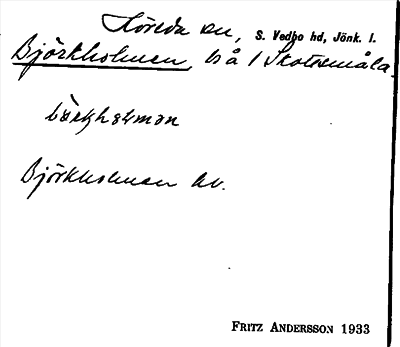 Höreda sn, S. Vedbo hd, Jönk. l.
Björkholmen, bå / Skottemåla.
bärkhɷlmən
Björkholmen hv.
FRITZ ANDERSSON 1933